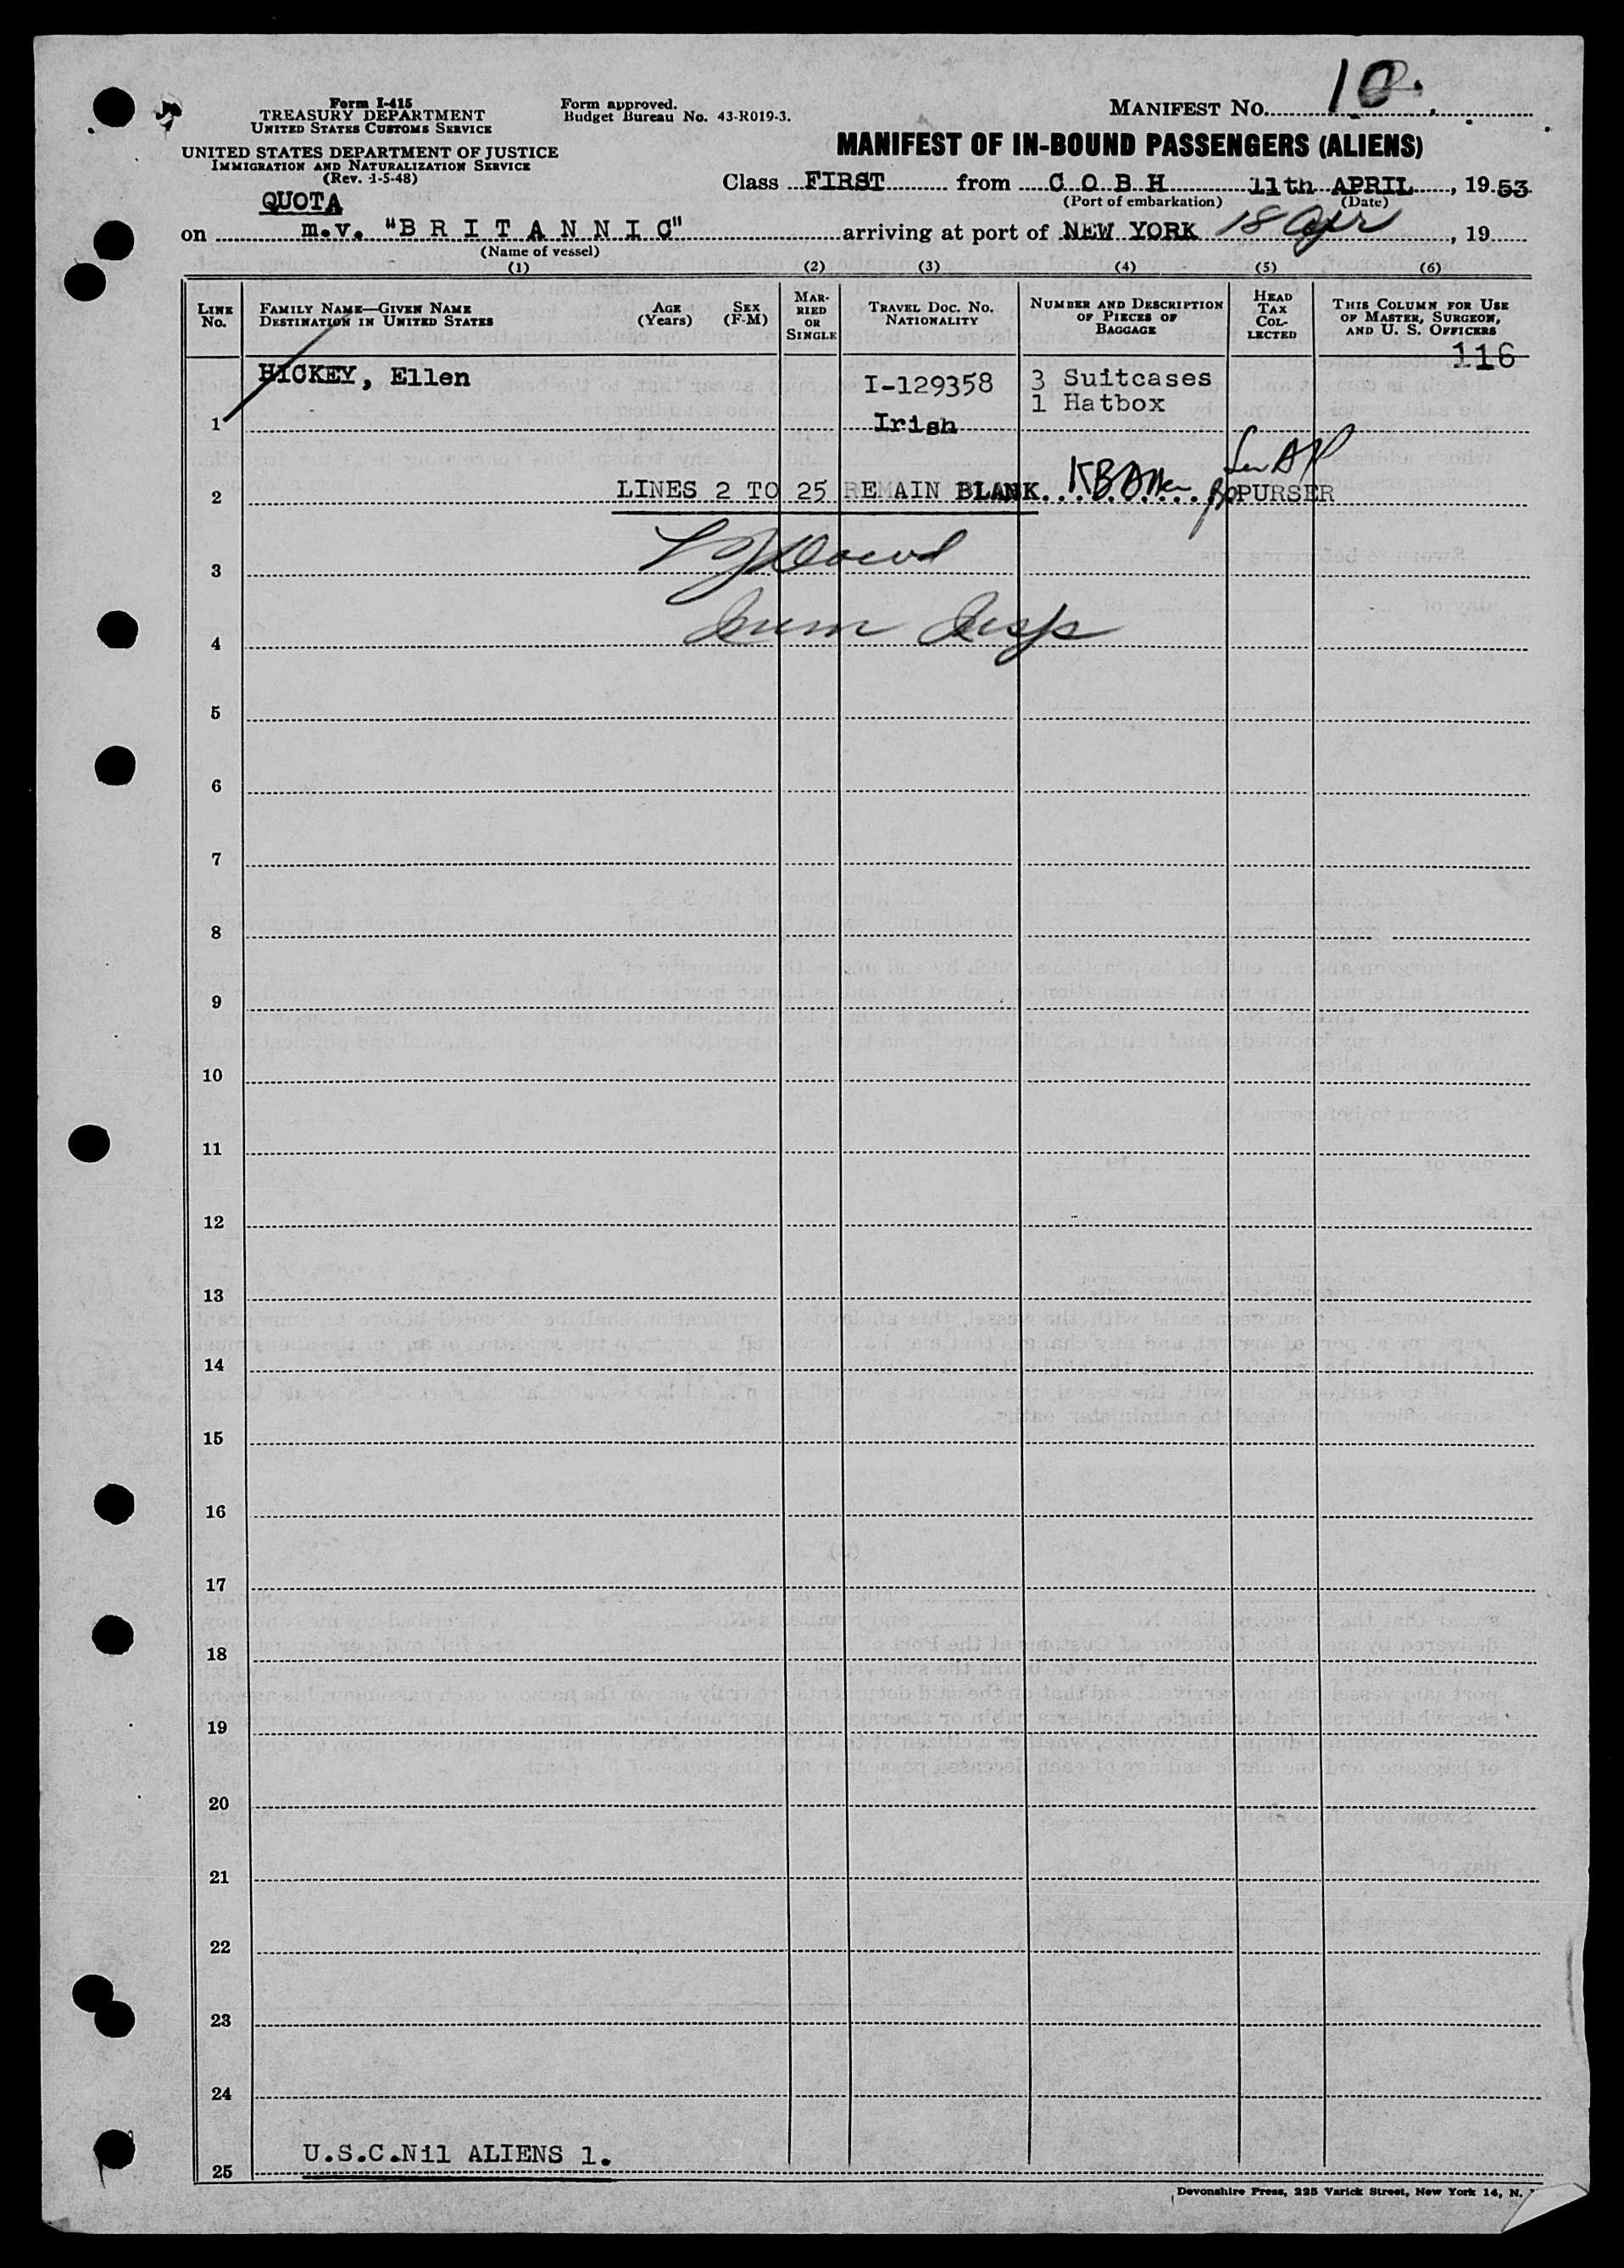 Form I-415
TREASURY DEPARTMENT
UNITED STATES CUSTOMS SERVICE
UNITED STATES DEPARTMENT OF JUSTICE
IMMIGRATION AND NATURALIZATION SERVICE
(Rev. 1-5-48)
Form approved.
Budget Bureau No. 43-R019-3.
MANIFEST NO. 10.
MANIFEST OF IN-BOUND PASSENGERS (ALIENS)
Class FIRST from C O B H 11th APRIL, 1953
(Port of embarkation) (Date)
QUOTA
on m.v. "B R I T A N N I C" arriving at port of NEW YORK 18 Apr, 19
(Name of vessel)
(1) (2) (3) (4) (5) (6)
LINE No.
FAMILY NAME—GIVEN NAME
DESTINATION IN UNITED STATES
AGE (Years)
SEX (F-M)
MARRIED OR SINGLE
TRAVEL DOC. NO.
NATIONALITY
NUMBER AND DESCRIPTION OF PIECES OF BAGGAGE
HEAD TAX COLLECTED
THIS COLUMN FOR USE OF MASTER, SURGEON, AND U. S. OFFICERS
116
HICKEY, Ellen I-129358 3 Suitcases
1 Hatbox
1 Irish
2 LINES 2 TO 25 REMAIN BLANK. PURSER
3
4 Imm Insp
5
6
7
8
9
10
11
12
13
14
15
16
17
18
19
20
21
22
23
24
25 U.S.C.Nil ALIENS 1.
Devonshire Press, 225 Varick Street, New York 14, N.